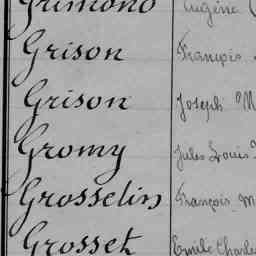 Grimond Eugène
Grison François
Grison Joseph M
Gromy Jules Louis
Grosselin François M
Grosset Emile Charles